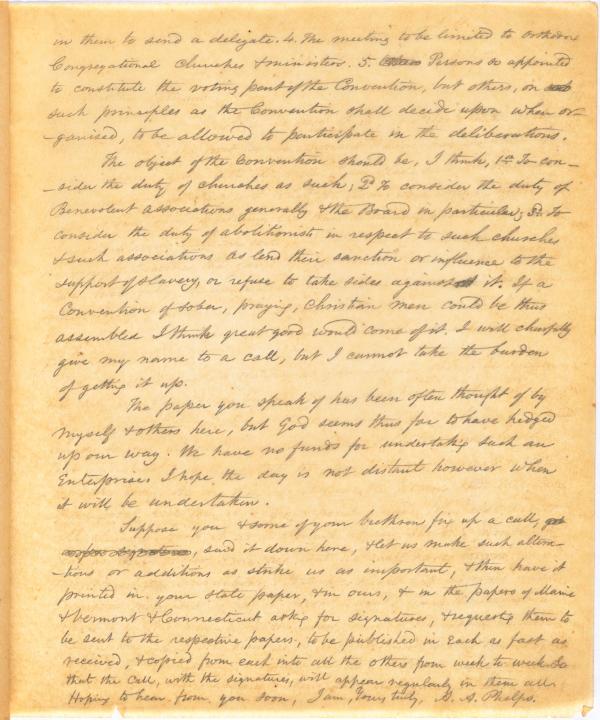 in them to send a delegate. 4. The meeting to be limited to Orthodox
Congregational Churches & ministers. 5. Persons so appointed
to constitute the voting part of the Convention, but others, on
such principles as the Convention shall decide upon when or-
-ganised, to be allowed to participate in the deliberations.
The object of the Convention should be, I think, 1st To con-
-sider the duty of churches as such; 2d To consider the duty of
Benevolent Associations generally & the Board in particular; 3d. To
consider the duty of abolitionists in respect to such churches
& such associations as lend their sanction or influence to the
support of slavery, or refuse to take sides against it. If a
Convention of sober, praying, Christian men could be thus
assembled I think great good would come of it. I will cheerfully
give my name to a call, but I cannot take the burden
of getting it up.
The paper you speak of has been often thought of by
myself & others here, but God seems thus far to have hedged
up our way. We have no funds for undertaking such an
Enterprise. I hope the day is not distant however when
it will be undertaken.
Suppose you & some of your brethren fix up a call,
send it down here, & let us make such altera-
-tions or additions as strike us as important, & then have it
printed in your state paper, & in ours, & in the papers of Maine
& Vermont & Connecticut asking for signatures, & requesting them to
be sent to the respective papers, to be published in Each as fast as
received, & copied from each into all the others from week to week So
that the Call, with the signatures, will appear regularly in them all.
Hoping to hear from you soon, I am, Yours truly, A. A. Phelps.